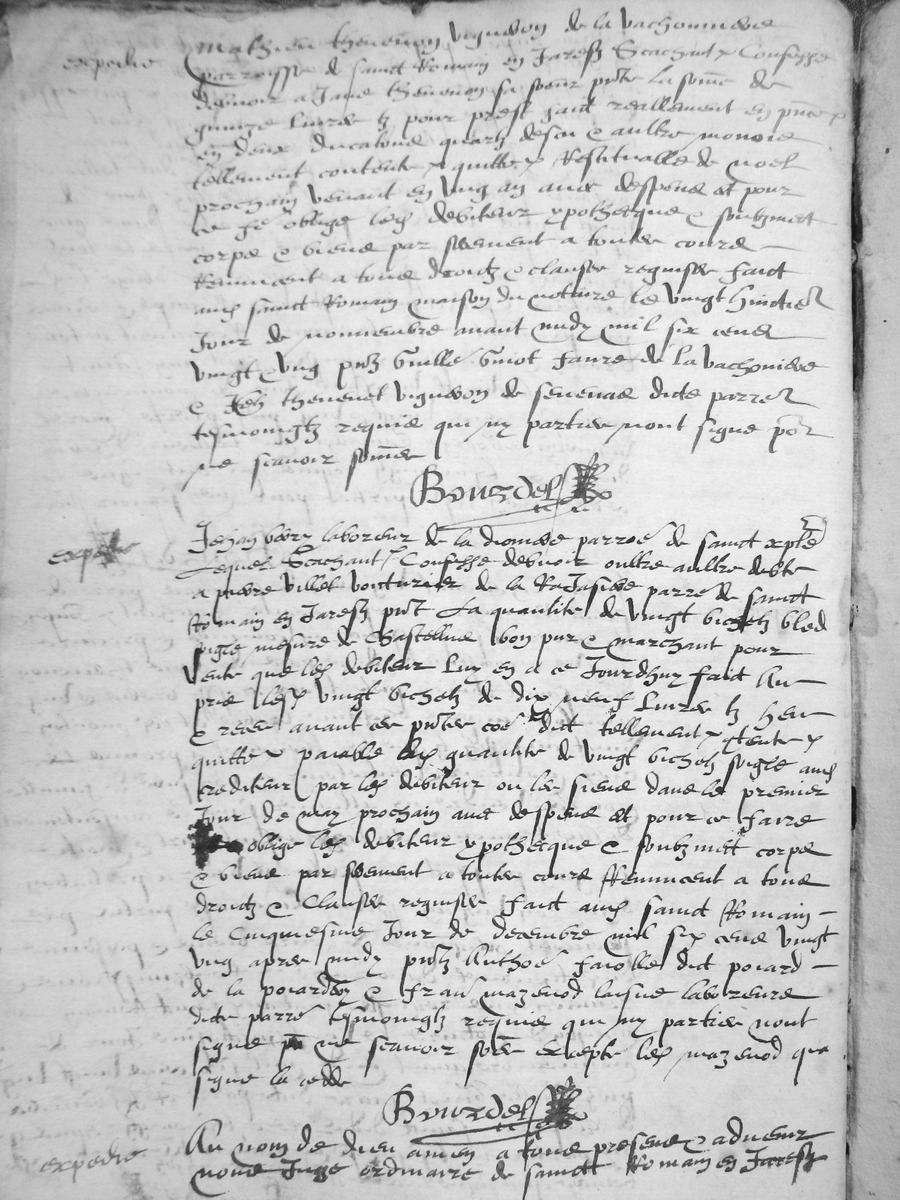 expedie
Mathieu thevenon vigneron de la vachonniere
parroisse de sainct Romain en Jarestz Scachant & Confesse
debvoir a Jane thevenon sa soeur pnte la some de
quinze livres tz pour prest faict reallement en pnce
en deux ducatons quartz descu & aultre monoie
tellement contente & quitte & Restituable de noel
prochain venant en ung an avec despens et pour
ce fe oblige led debiteur ypothecque & soubzmect
corps & biens par serement a toutes cours
Renuncent a tous droictz & clauses requises faict
aud sainct Romain maison du notaire le vingt huictie
Jour de novembre avant midy mil six cens
vingt & ung pntz Guille Guiot faure de la vachoniere
& Jeh thevenet vigneron de senevas dicte parre
tesmoingtz requis qui ny parties nont signe por
ne scavoir somes
Bourdel
expedie
Jehan very laboreur de la parroe de sainct xpte
lequel Scachant & Confesse debvoir oultre aultre debte
a pierre villet voicturier de la Rajasiere parre de sainct
Romain en Jarestz pnt La quantite de vingt bichetz bled
soigle mesure de Chastellus bon pur & marchant pour
vente que led debiteur luy en a ce Jourdhuy faict Au
pris lesd vingt bichetz de dix neuf livres tz heu
& receu avant ces pntes coe dict tellement &
quitte & paiable lad quantite de vingt bichetz soigle aud
crediteur par led debiteur ou les siens dans le premier
Jour de may prochain avec despens et pour ce faire
oblige led debiteur ypothecque & soubzmect corps
& biens par serement a toutes cours Renuncent a tous
droictz & Clauses requises faict aud sainct Romain
le cinquiesme Jour de decembre mil six cens vingt
ung apres midy pntz Anthoe faiolle dict poiard
de la & fran mazenod laisne laboreurs
dicte parre tesmoingtz requis qui ny parties nont
signe pr ne scavoir soes excepte led mazenod qua
signe la cedde
Bourdel
expedie
Au nom de dieu amen a tous presens & advenir
nous Juge ordinaire de sainct Romain en Jarestz